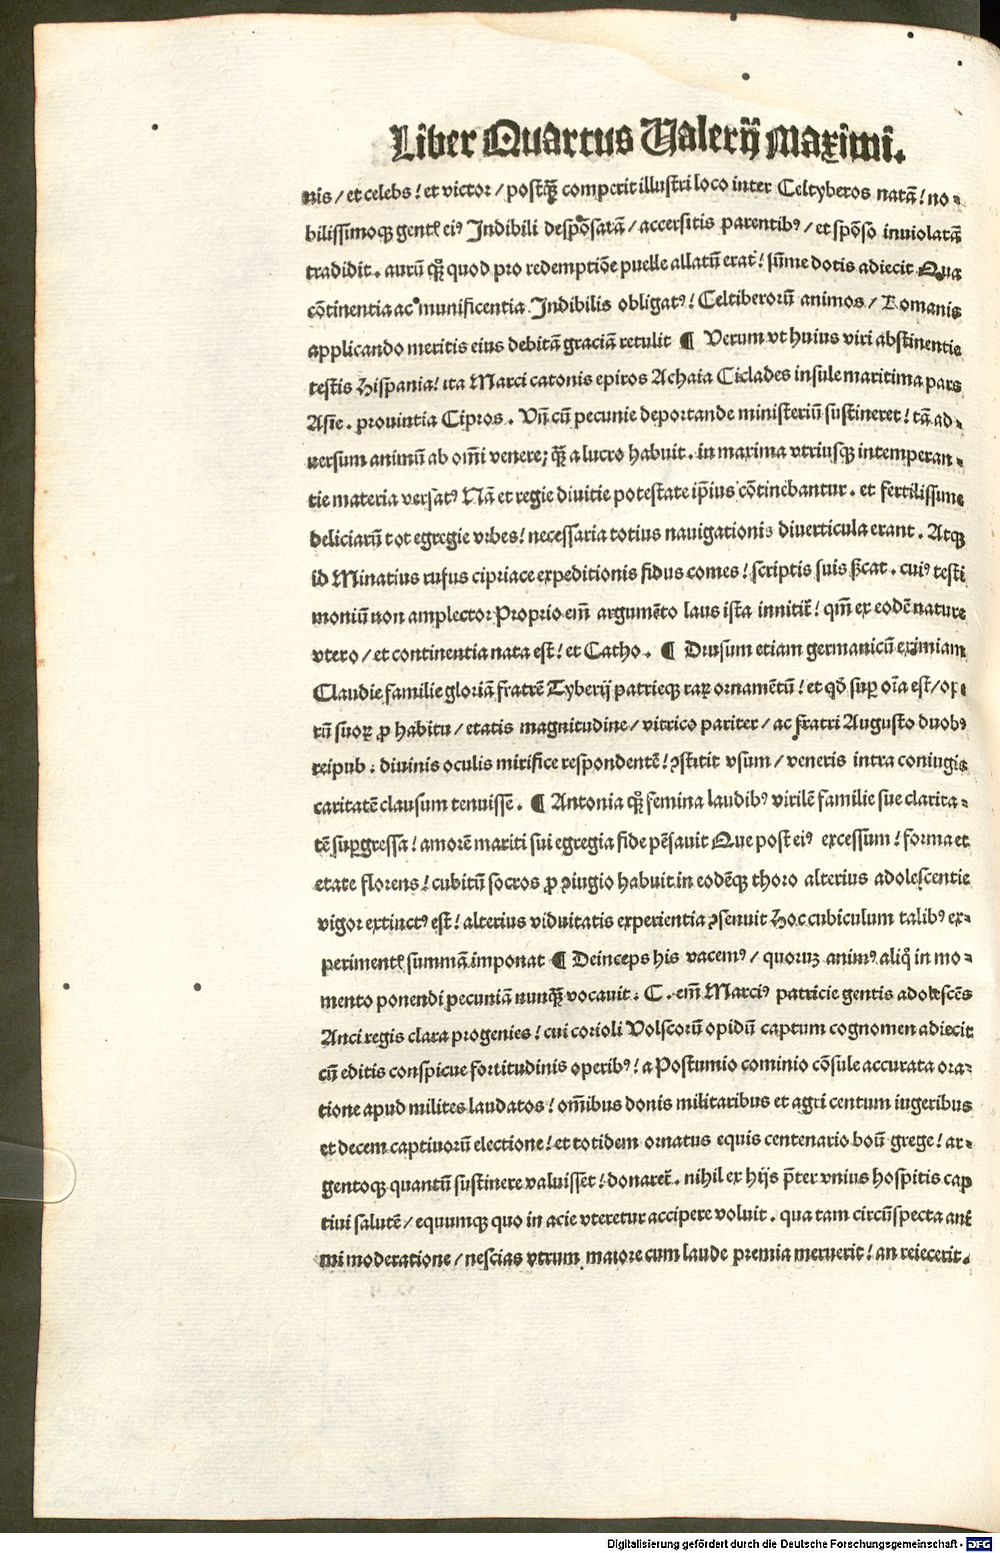 Liber Quartus Ualerij Maximi.
nis / et celebs! et victor / postqȝ comperit illustri loco inter Celtyberos natā! no⸗
bilissimoqȝ gentꝭ eiꝰ Indibili despōsatā / accersitis parentibꝰ / et spōso inuiolatā
tradidit. aurū qȝ quod pro redemptiōe puelle allatū erat! sūme dotis adiecit Qua
cōtinentia ac munificentia Indibilis obligatꝰ! Celtiberorū animos / Romanis
applicando meritis eius debitā graciā retulit ¶ Verum vt huius viri abstinentie
testis Hispania! ita Marci catonis epiros Achaia Ciclades insule maritima pars
Asie. prouintia Cipros. Vn̄ cū pecunie deportande ministeriū sustineret! tā ad⸗
uersum animū ab om̄i venere; qȝ a lucro habuit. in maxima vtriusqȝ intemperan⸗
tie materia versatꝰ Nā et regie diuitie potestate ip̄ius cōtinebantur. et fertilissime
deliciarū tot egregie vrbes! necessaria totius nauigationis diuerticula erant. Atqȝ
id Minatius rufus cipriace expeditionis fidus comes! scriptis suis p̄dicat. cuiꝰ testi
moniū non amplector Proprio em̄ argumēto laus ista innitit̄! qm̄ ex eodē nature
vtero / et continentia nata est! et Catho. ¶ Drusum etiam germanicū eximiam
Claudie familie gloriā fratrē Tyberij patrieqȝ raꝝ ornamētū! et qđ suꝑ oīa est / ope
rū suoꝝ ꝓ habitu / etatis magnitudine / vitrico pariter / ac fratri Augusto duobꝰ
reipub: diuinis oculis mirifice respondentē! ↄstitit vsum / veneris intra coniugis
caritatē clausum tenuisse. ¶ Antonia qȝ femina laudibꝰ virilē familie sue clarita⸗
tē suꝑgressa! amorē mariti sui egregia fide pēsauit Que post eiꝰ excessum! forma et
etate florens! cubitū socros ꝓ ↄiugio habuit in eodēqȝ thoro alterius adolescentie
vigor extinctꝰ est! alterius viduitatis experientia ↄsenuit Hoc cubiculum talibꝰ ex⸗
perimentꝭ summā imponat ¶ Deinceps his vacemꝰ / quoruȝ animꝰ aliq̊ in mo⸗
mento ponendi pecuniā nunqȝ vocauit: C. em̄ Marciꝰ patricie gentis adolescēs
Anci regis clara progenies! cui corioli Volscorū opidū captum cognomen adiecit
cū editis conspicue fortitudinis operibꝰ! a Postumio cominio cōsule accurata ora⸗
tione apud milites laudatos! om̄ibus donis militaribus et agri centum iugeribus
et decem captiuorū electione! et totidem ornatus equis centenario boū grege! ar⸗
gentoqȝ quantū sustinere valuissēt! donaret̄. nihil ex hijs p̄ter vnius hospitis cap
tiui salutē / equumqȝ quo in acie vteretur accipere voluit. qua tam circūspecta ani
mi moderatione / nescias vtrum maiore cum laude premia meruerit! an reiecerit.
Digitalisierung gefördert durch die Deutsche Forschungsgemeinschaft - DFG